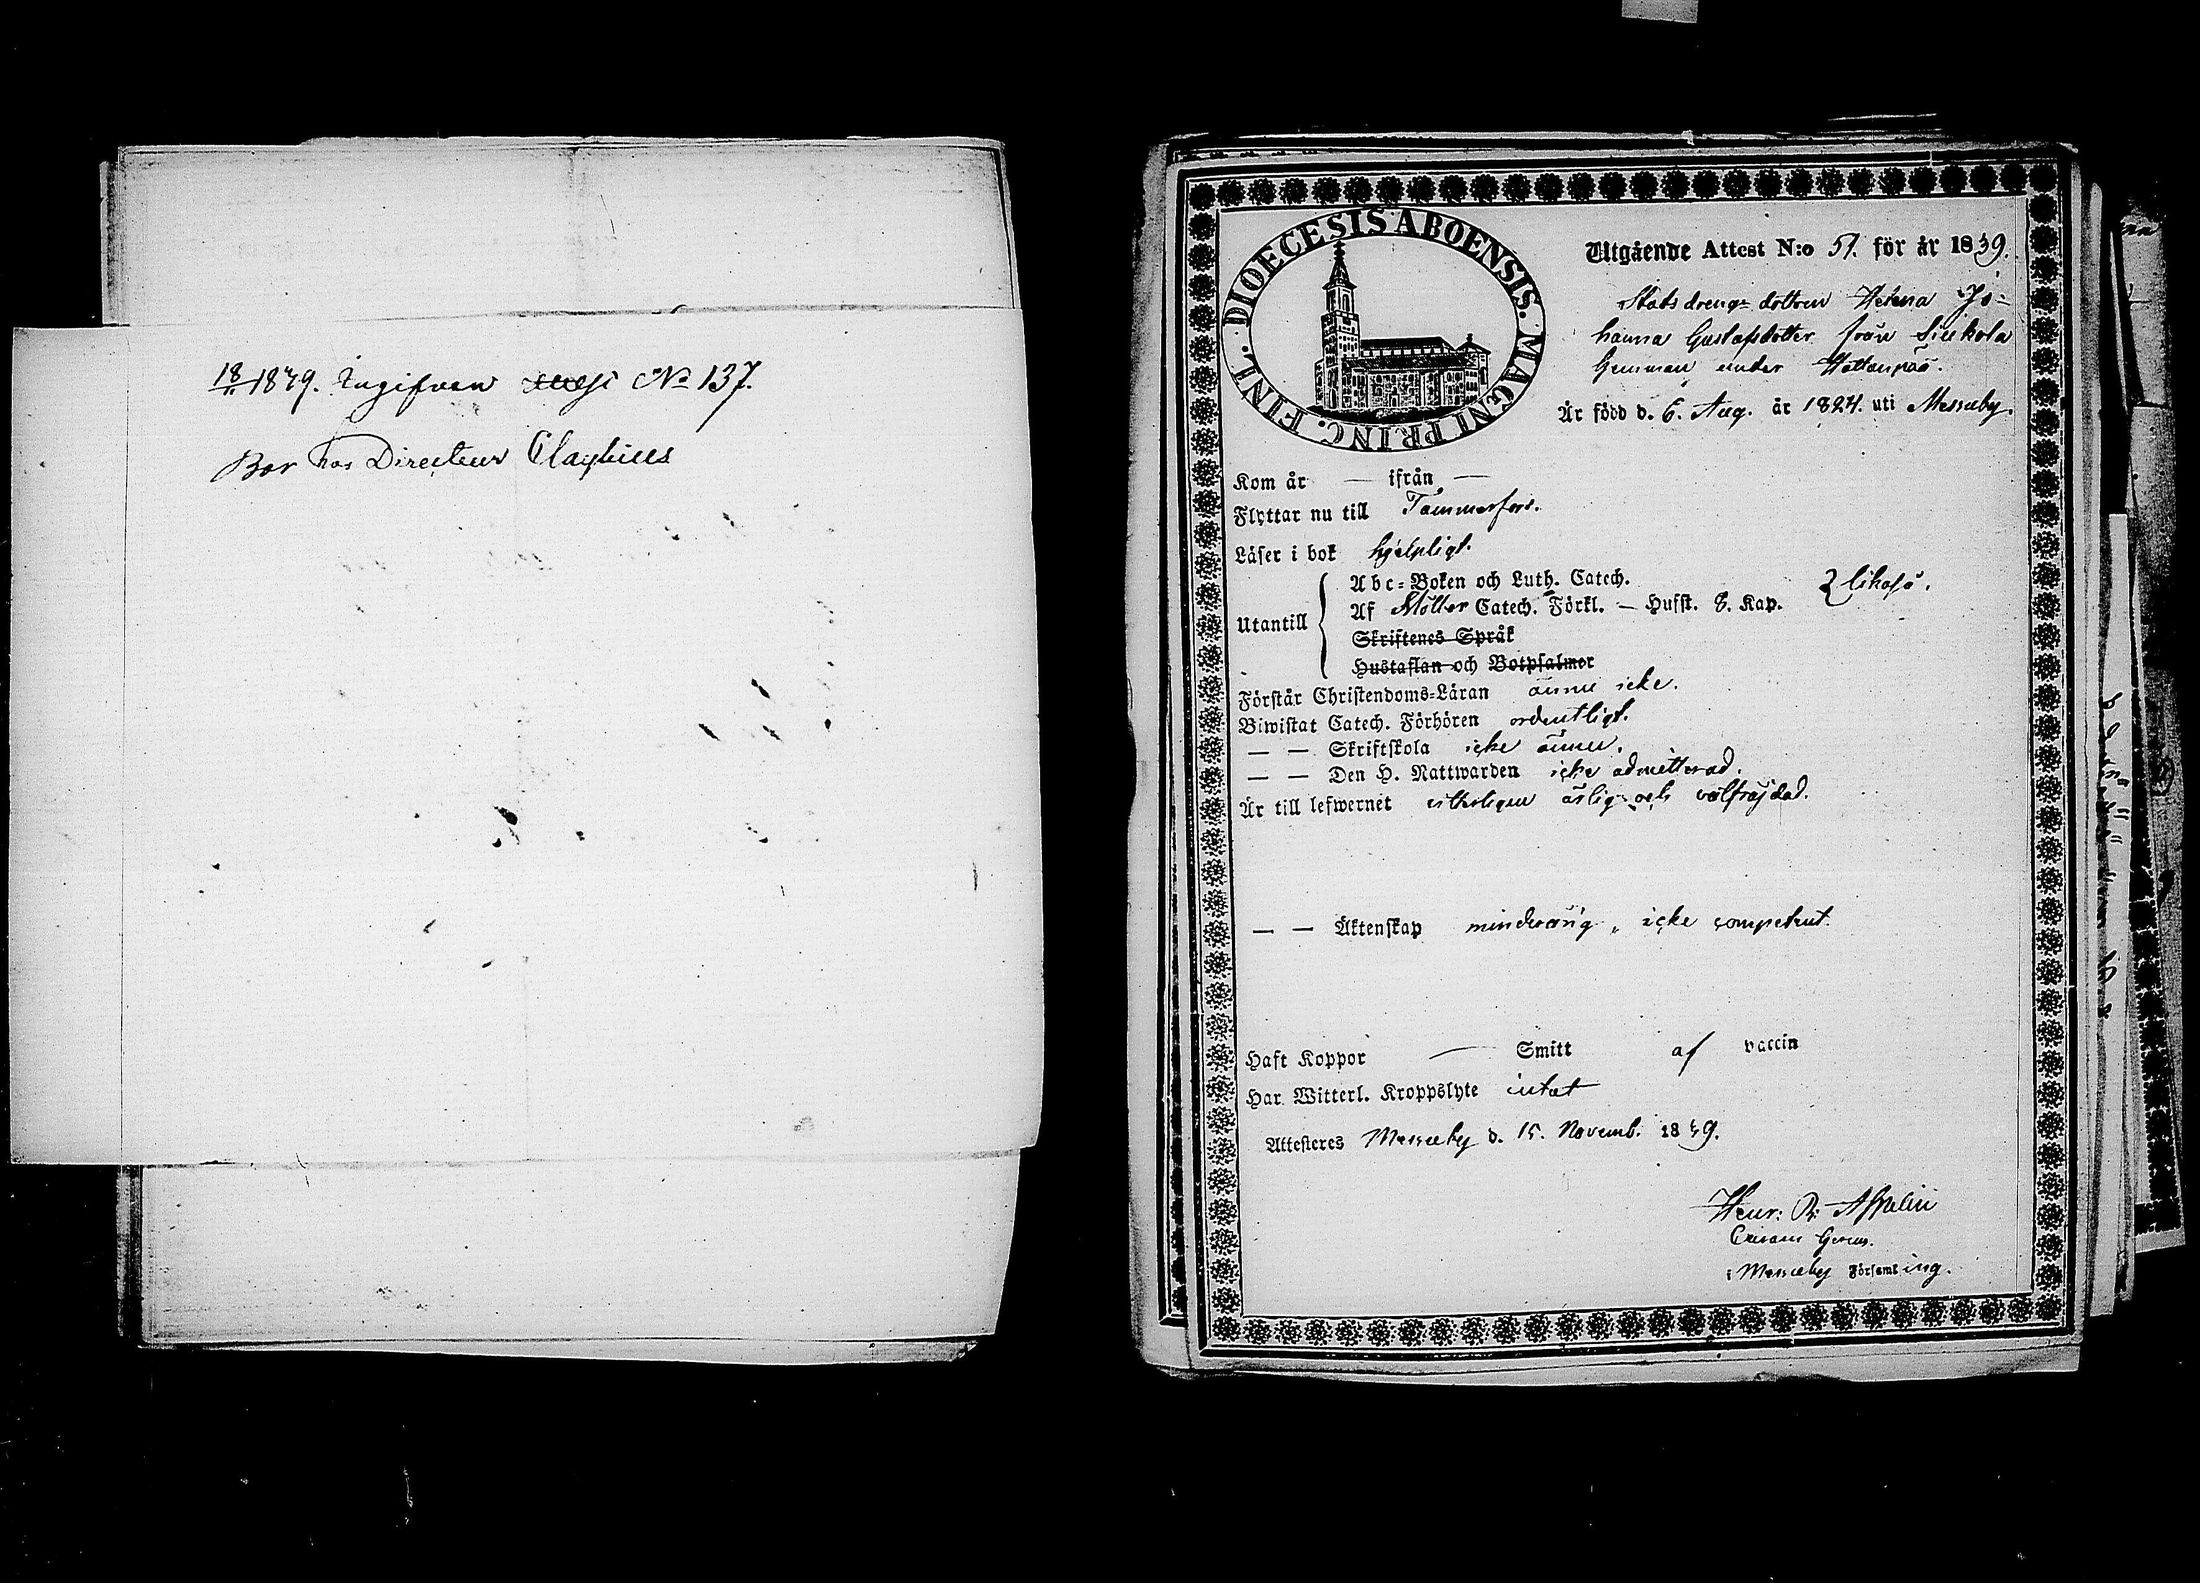 18/11 1839. Ingifven N:o 137.
Bor hos Directeur Clayhills
DIOECESIS ABOENSIS. MAGNI PRINC. FINL.
Utgående Attest N:o 51. för år 1839.
Statsdrengs dottren Helena Jo-
hanna Gustafsdotter från Siukola
Hemman under Hattanpää.
Är född d. 6. Aug. år 1824. uti Messuby.
Kom år — ifrån —
Flyttar nu till Tammerfors.
Läser i bok hjelpligt.
Utantill
Abc-Boken och Luth. Catech.
Af Möller Catech. Förkl. — Husst. 8. Kap. } likaså.
Skriftenes Språk
Hustaflan och Botpsalmer
Förstår Christendoms-Läran ännu icke.
Biwistat Catech. Förhören ordentligt.
— — Skriftskola icke ännu.
— — Den H. Nattwarden icke admitterad.
Är till lefwernet ärlig och välfräjdad.
— — Äktenskap minderårig, icke competent.
Haft Koppor — Smitt af vaccin
Har Witterl. Kroppslyte intet
Attesteres Messuby d. 15. Novemb. 1839.
Henr: R: Aspelin
i Messuby Församling.